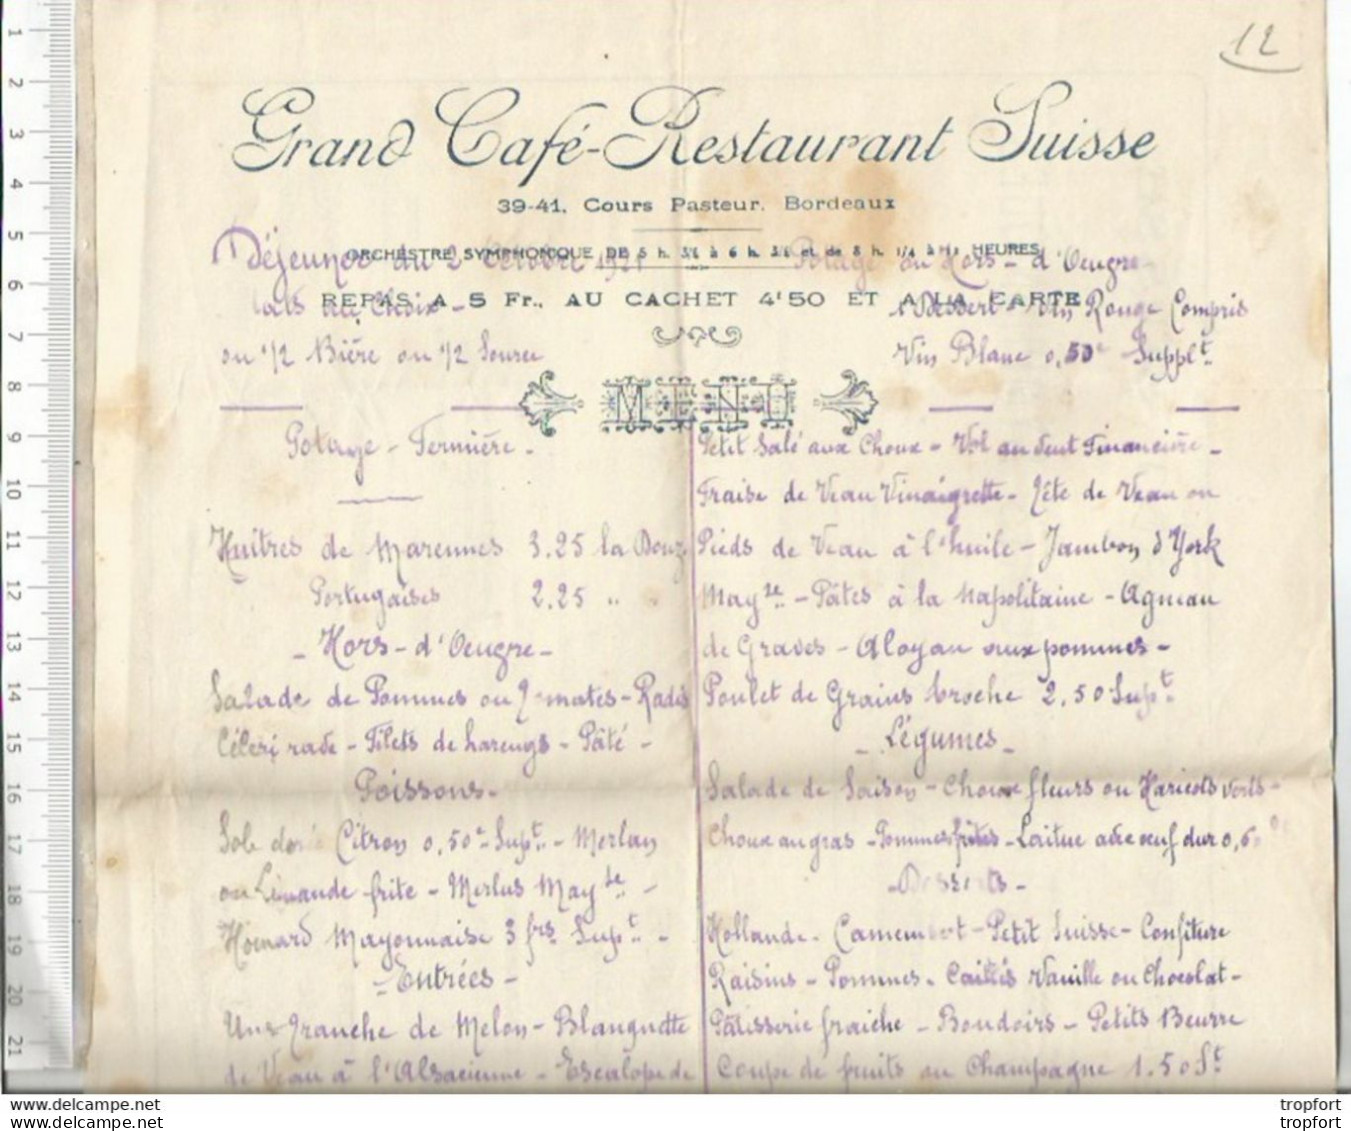 12
Grand Café-Restaurant Suisse
39-41, Cours Pasteur, Bordeaux
ORCHESTRE SYMPHONIQUE DE 5 h. 3/4 à 6 h. 3/4 et de 8 h. 1/4 à 11 HEURES
Déjeuner du 2 Octobre 1921
Potage ou Hors-d'Oeuvre
REPAS A 5 Fr., AU CACHET 4f50 ET A LA CARTE
Plats au Choix -
1 Dessert - Vin Rouge Compris
ou 1/2 Bière ou 1/2 Source
Vin Blanc 0,50c Supplt.
MENU
Potage - Fermière -
Huîtres de Marennes 3.25 la Douz
Portugaises 2.25 " "
- Hors-d'Oeuvre -
Salade de Pommes ou Tomates - Radis
Céleri rave - Filets de harengs - Pâté -
Poissons -
Sole dorée Citron 0,50c Supt. - Merlan
ou Limande frite - Merlus Mayse -
Homard Mayonnaise 3 frs Supt -
- Entrées -
Une Tranche de Melon - Blanquette
de Veau à l'Alsacienne - Escalope de
Petit Salé aux Choux - Vol au Vent Financière -
Fraise de Veau Vinaigrette - Tête de Veau ou
Pieds de Veau à l'huile - Jambon d'York
Mayse - Pâtes à la Napolitaine - Agneau
de Graves - Aloyau aux pommes -
Poulet de Grains broche 2.50 Supt.
- Légumes -
Salade de Saison - Choux fleurs ou Haricots Verts -
Choux au gras - Pommes frites - Laitue avec oeuf dur 0,60
- Desserts -
Hollande - Camembert - Petit Suisse - Confiture
Raisins - Pommes - Caillés Vanille ou Chocolat -
Pâtisserie fraîche - Boudoirs - Petits Beurre
Coupe de fruits au Champagne 1.50 St
1
2
3
4
5
6
7
8
9
10
11
12
13
14
15
16
17
18
19
20
21
www.delcampe.net
tropfort
www.delcampe.net
tropfort